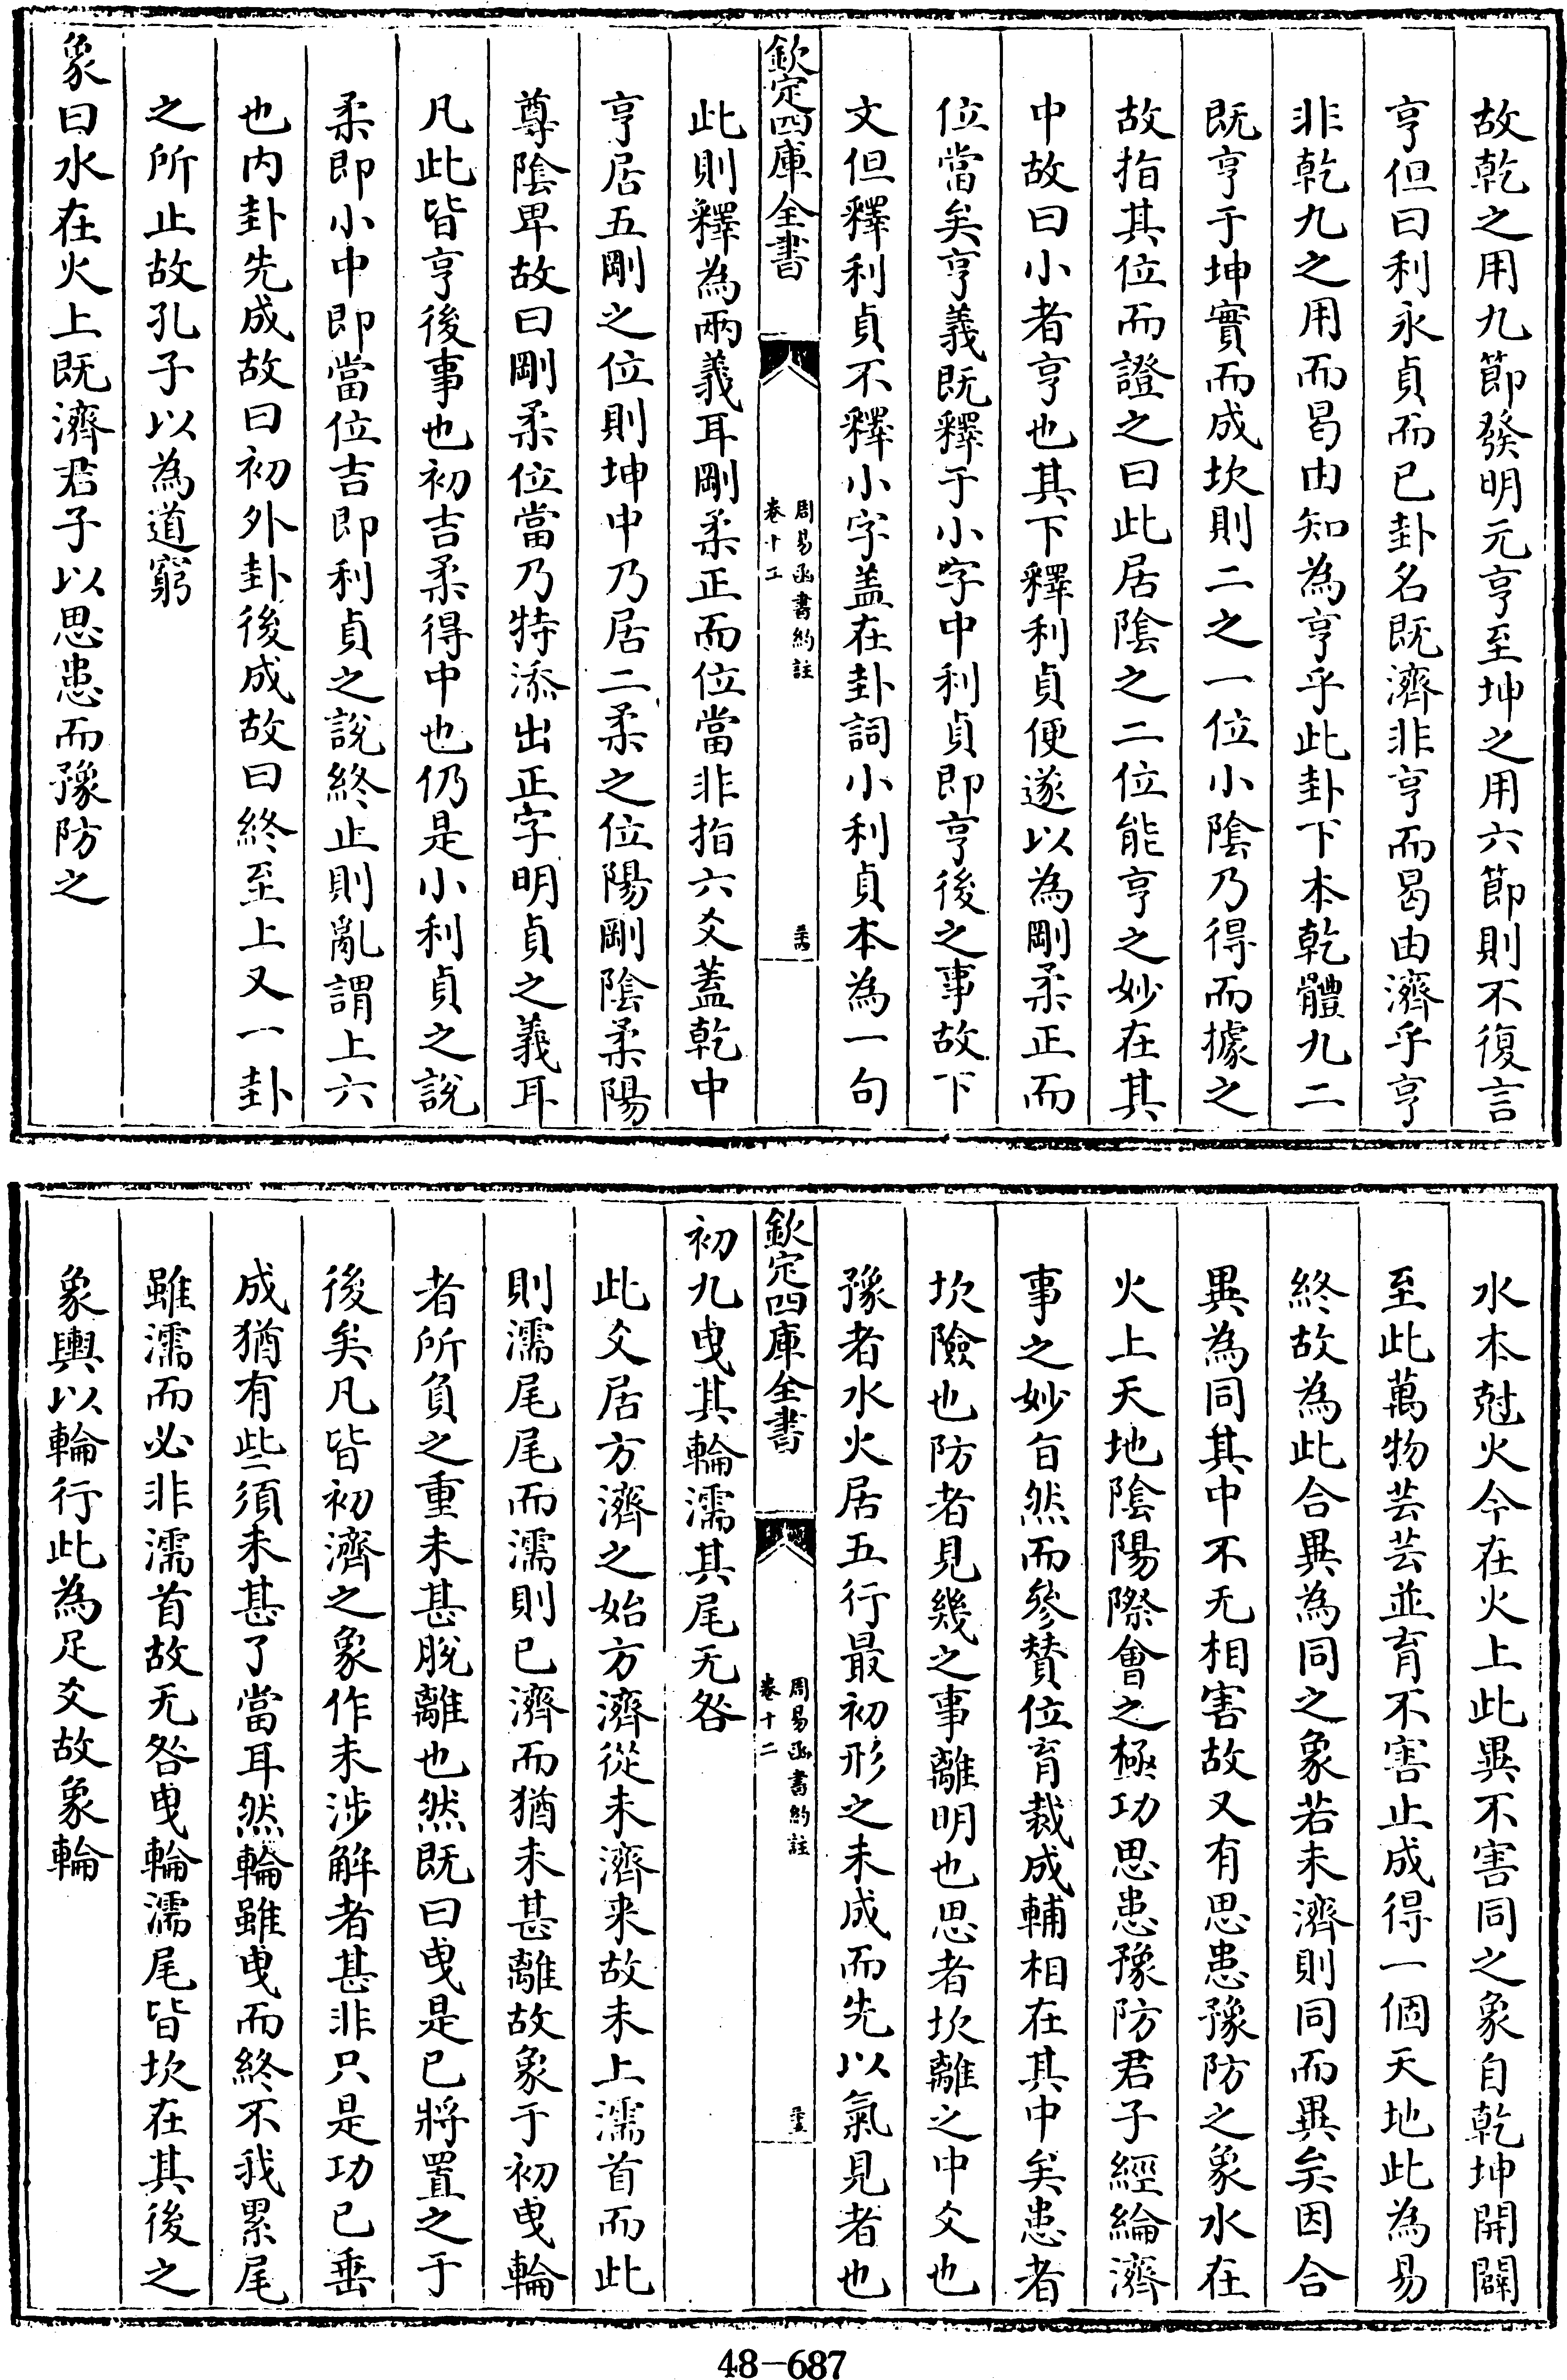 故乾之用九節發明元亨至坤之用六節則不復言
亨但曰利永貞而已卦名既濟非亨而曷由濟乎亨
非乾九之用而曷由知為亨乎此卦下本乾體九二
既亨于坤實而成坎則二之一位小陰乃得而據之
故指其位而證之曰此居陰之二位能亨之妙在其
中故曰小者亨也其下釋利貞便遂以為剛柔正而
位當矣亨義既釋于小字中利貞即亨後之事故下
文但釋利貞不釋小字盖在卦詞小利貞本為一句
欽定四庫全書
周易函書約註
卷十二
此則釋為兩義耳剛柔正而位當非指六爻蓋乾中
亨居五剛之位則坤中乃居二柔之位陽剛陰柔陽
尊陰卑故曰剛柔位當乃特添出正字明貞之義耳
凡此皆亨後事也初吉柔得中也仍是小利貞之說
柔即小中即當位吉即利貞之說終止則亂謂上六
也内卦先成故曰初外卦後成故曰終至上又一卦
之所止故孔子以為道窮
象曰水在火上既濟君子以思患而豫防之
水本尅火今在火上此異不害同之象自乾坤開闢
至此萬物芸芸並育不害止成得一個天地此為易
終故為此合異為同之象若未濟則同而異矣因合
異為同其中不无相害故又有思患豫防之象水在
火上天地陰陽際會之極功思患豫防君子經綸濟
事之妙自然而參賛位育裁成輔相在其中矣患者
坎險也防者見幾之事離明也思者坎離之中爻也
豫者水火居五行最初形之未成而先以氣見者也
欽定四庫全書
周易函書約註
卷十二
初九曳其輪濡其尾无咎
此爻居方濟之始方濟從未濟来故未上濡首而此
則濡尾尾而濡則已濟而猶未甚離故象于初曳輪
者所負之重未甚脫離也然既曰曳是已將置之于
後矣凡皆初濟之象作未涉解者甚非只是功已垂
成猶有些須未甚了當耳然輪雖曳而終不我累尾
雖濡而必非濡首故无咎曳輪濡尾皆坎在其後之
象輿以輪行此為足爻故象輪
48-687